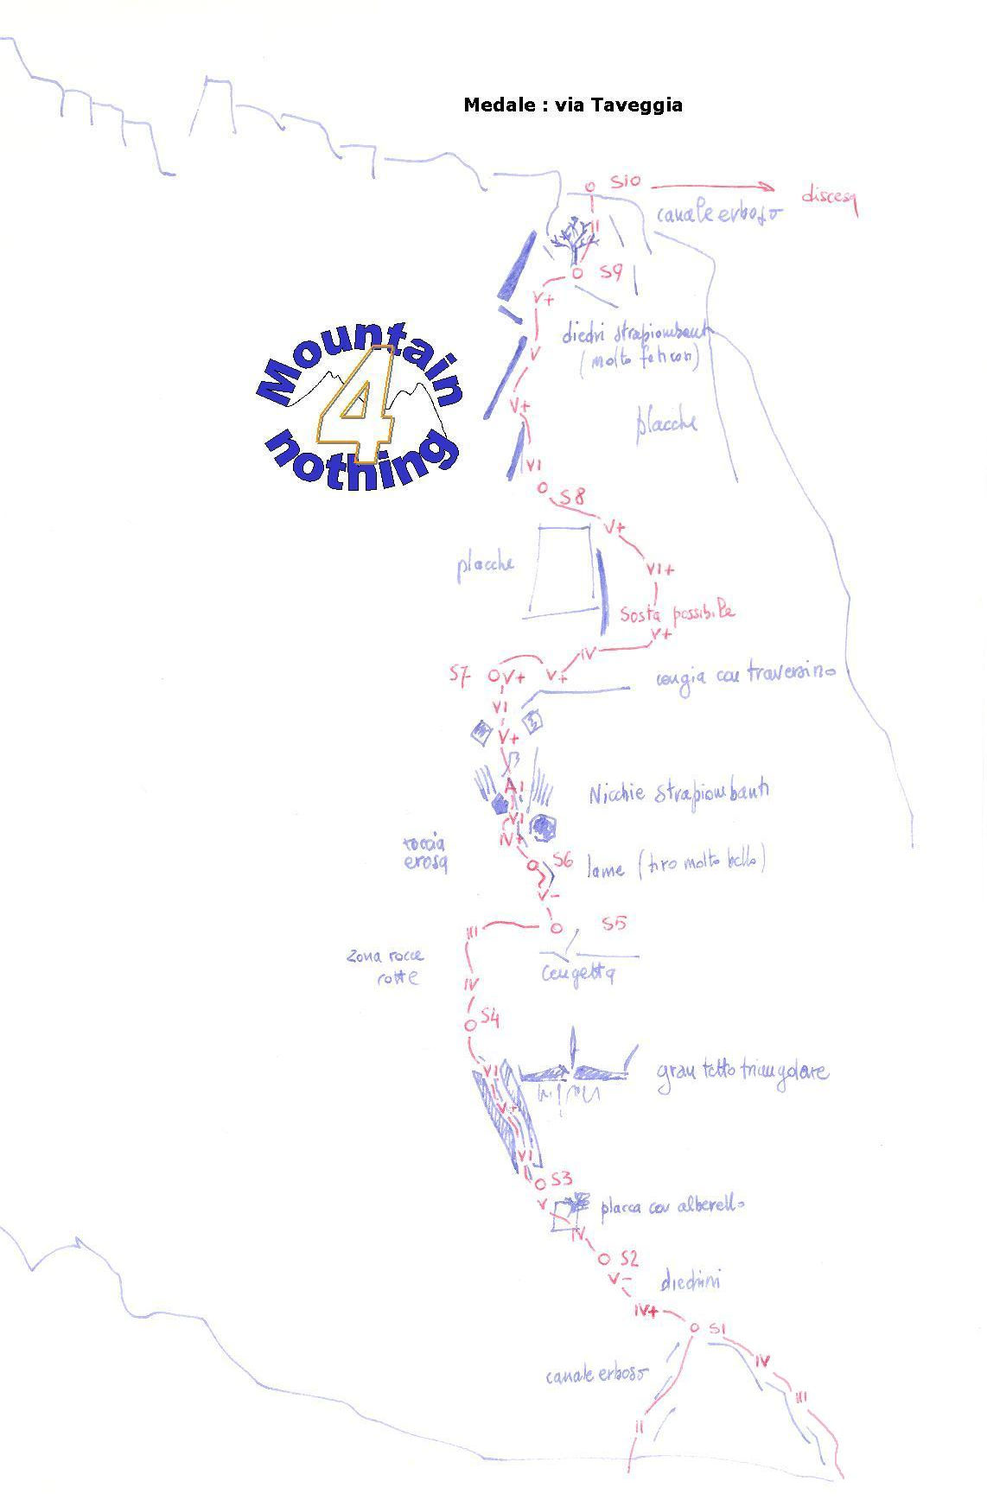 Medale : via Taveggia
S10
discesa
canale erboso
II
S9
V+
diedri strapiombanti
(molto
V
V+
placche
VI
S8
V+
placche
VI+
Sosta possibile
V+
IV
S7
V+
V+
cengia con traversino
VI
V+
A1
Nicchie strapiombanti
VI
IV+
roccia
erosa
S6
lame (tiro molto bello)
V-
S5
III
Zona rocce
rotte
Cengetta
IV
S4
VI
gran tetto triangolare
V+
VI
S3
V
placca con alberello
IV
S2
V-
diedrini
IV+
S1
IV
canale erboso
III
II
Mountain
4
nothing